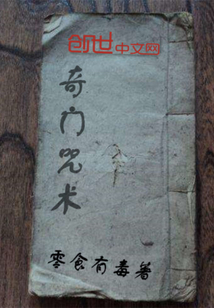 创世中文网
奇门咒术
零食有毒著